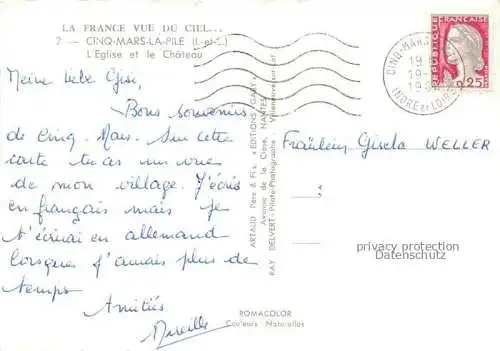 LA FRANCE VUE DU CIEL...
2 — CINQ-MARS-LA-PILE (I.-et-L.)
L'Eglise et le Château
Meine liebe Gisi,
Bons souvenirs
de Cinq-Mars. Sur cette
carte tu as un vue
de mon village. J'écris
en français mais je
t'écrirai en allemand
lorsque j'aurais plus de
temps
Amitiés
Mireille
ARTAUD Père & Fils, «EDITIONS GABY»
Avenue de la Close, NANTES
RAY DELVERT - Pilote-Photographe - Villeneuve-sur-Lot
ROMACOLOR
Couleurs Naturelles
CINQ-MARS
19
19
INDRE ET LOIRE
REPUBLIQUE
FRANÇAISE
0,25
Fräulein Gisela WELLER
privacy protection
Datenschutz